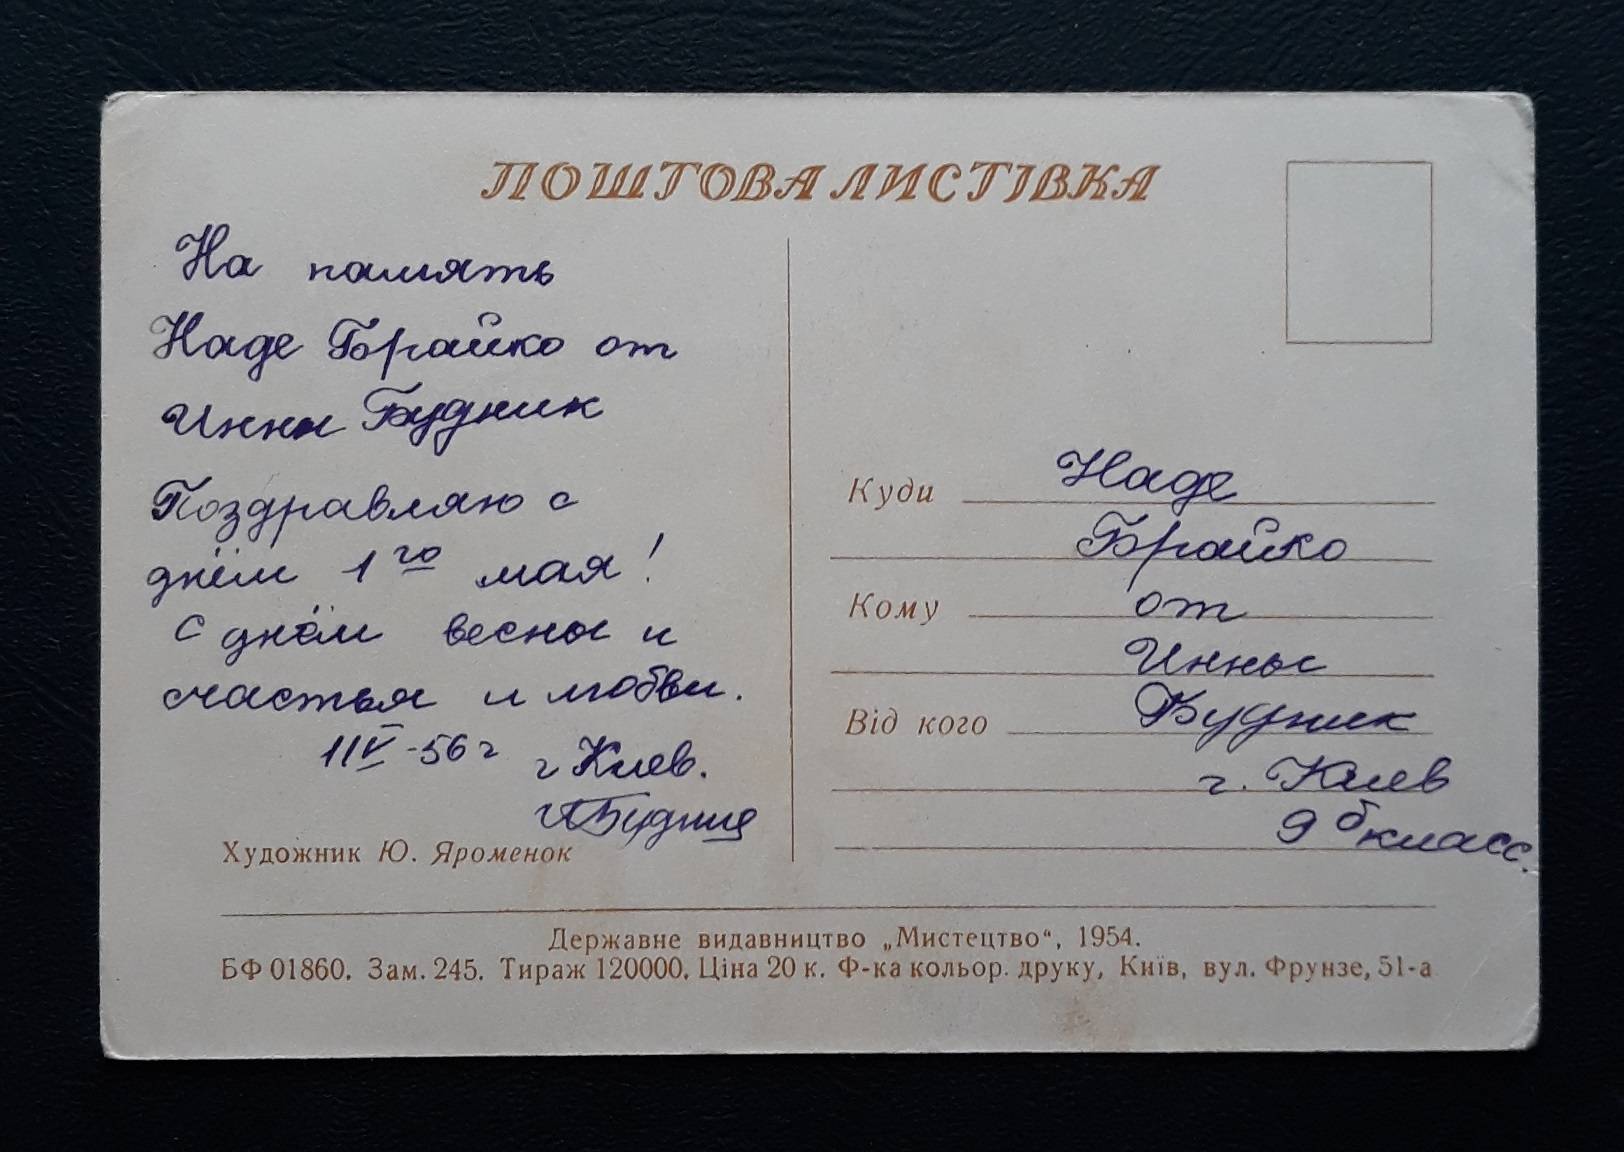 ПОШТОВА ЛИСТІВКА
На память
Наде Брайко от
Инны Будник
Поздравляю с
днём 1го мая!
С днём весны и
счастья и любви.
1/V-56 г г Киев.
Художник Ю. Яроменок
Куди Наде
Брайко
Кому от
Инны
Від кого Будник
г. Киев
9 б класс.
Державне видавництво „Мистецтво“, 1954.
БФ 01860. Зам. 245. Тираж 120000. Ціна 20 к. Ф-ка кольор. друку, Київ, вул. Фрунзе, 51-а